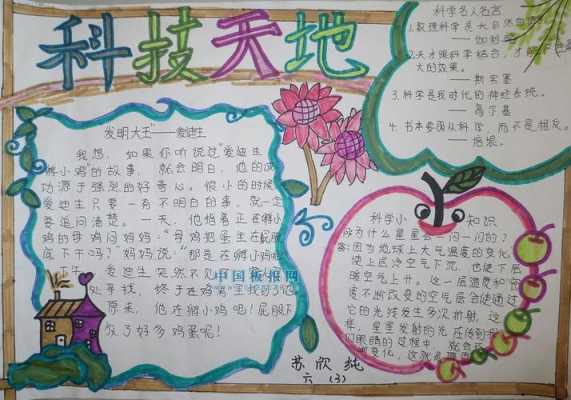 科技天地
发明大王"——爱迪生
我想，如果你听说过"爱迪生
孵小鸡"的故事，就会明白，他的成
功源于强烈的好奇心。很小的时候
爱迪生只要一有不明白的事，就一定
要追问清楚。一天，他指着正在孵小
鸡的母鸡问妈妈："母鸡把蛋坐在屁股
底下干吗？"妈妈说："那是在孵小鸡
爱迪生突然不见
处寻找，终于在鸡窝里找到了他
原来，他在孵小鸡吧！屁股下
放了好多鸡蛋呢！
中国板报网
科学名人名言
1.数理科学是大自然
——伽利略
2.天才与科学结合，才能
大的效果。
——斯宾塞
3.科学是我时代的神经系统。
——高尔基
4.书本要围从科学，而不是相反。
——培根。
科学小知识
为什么星星会一闪一闪的？
答：因为地球上大气温度的变化
使上层冷空气下沉，也使下层
暖空气上升。这一层温度和密
度不断改变的空气层会使通过
它的光线发生多次折射，这
样，星星发射的光在传到
们眼睛的过程中，就会
变化，这就
苏欣纯
六（3）